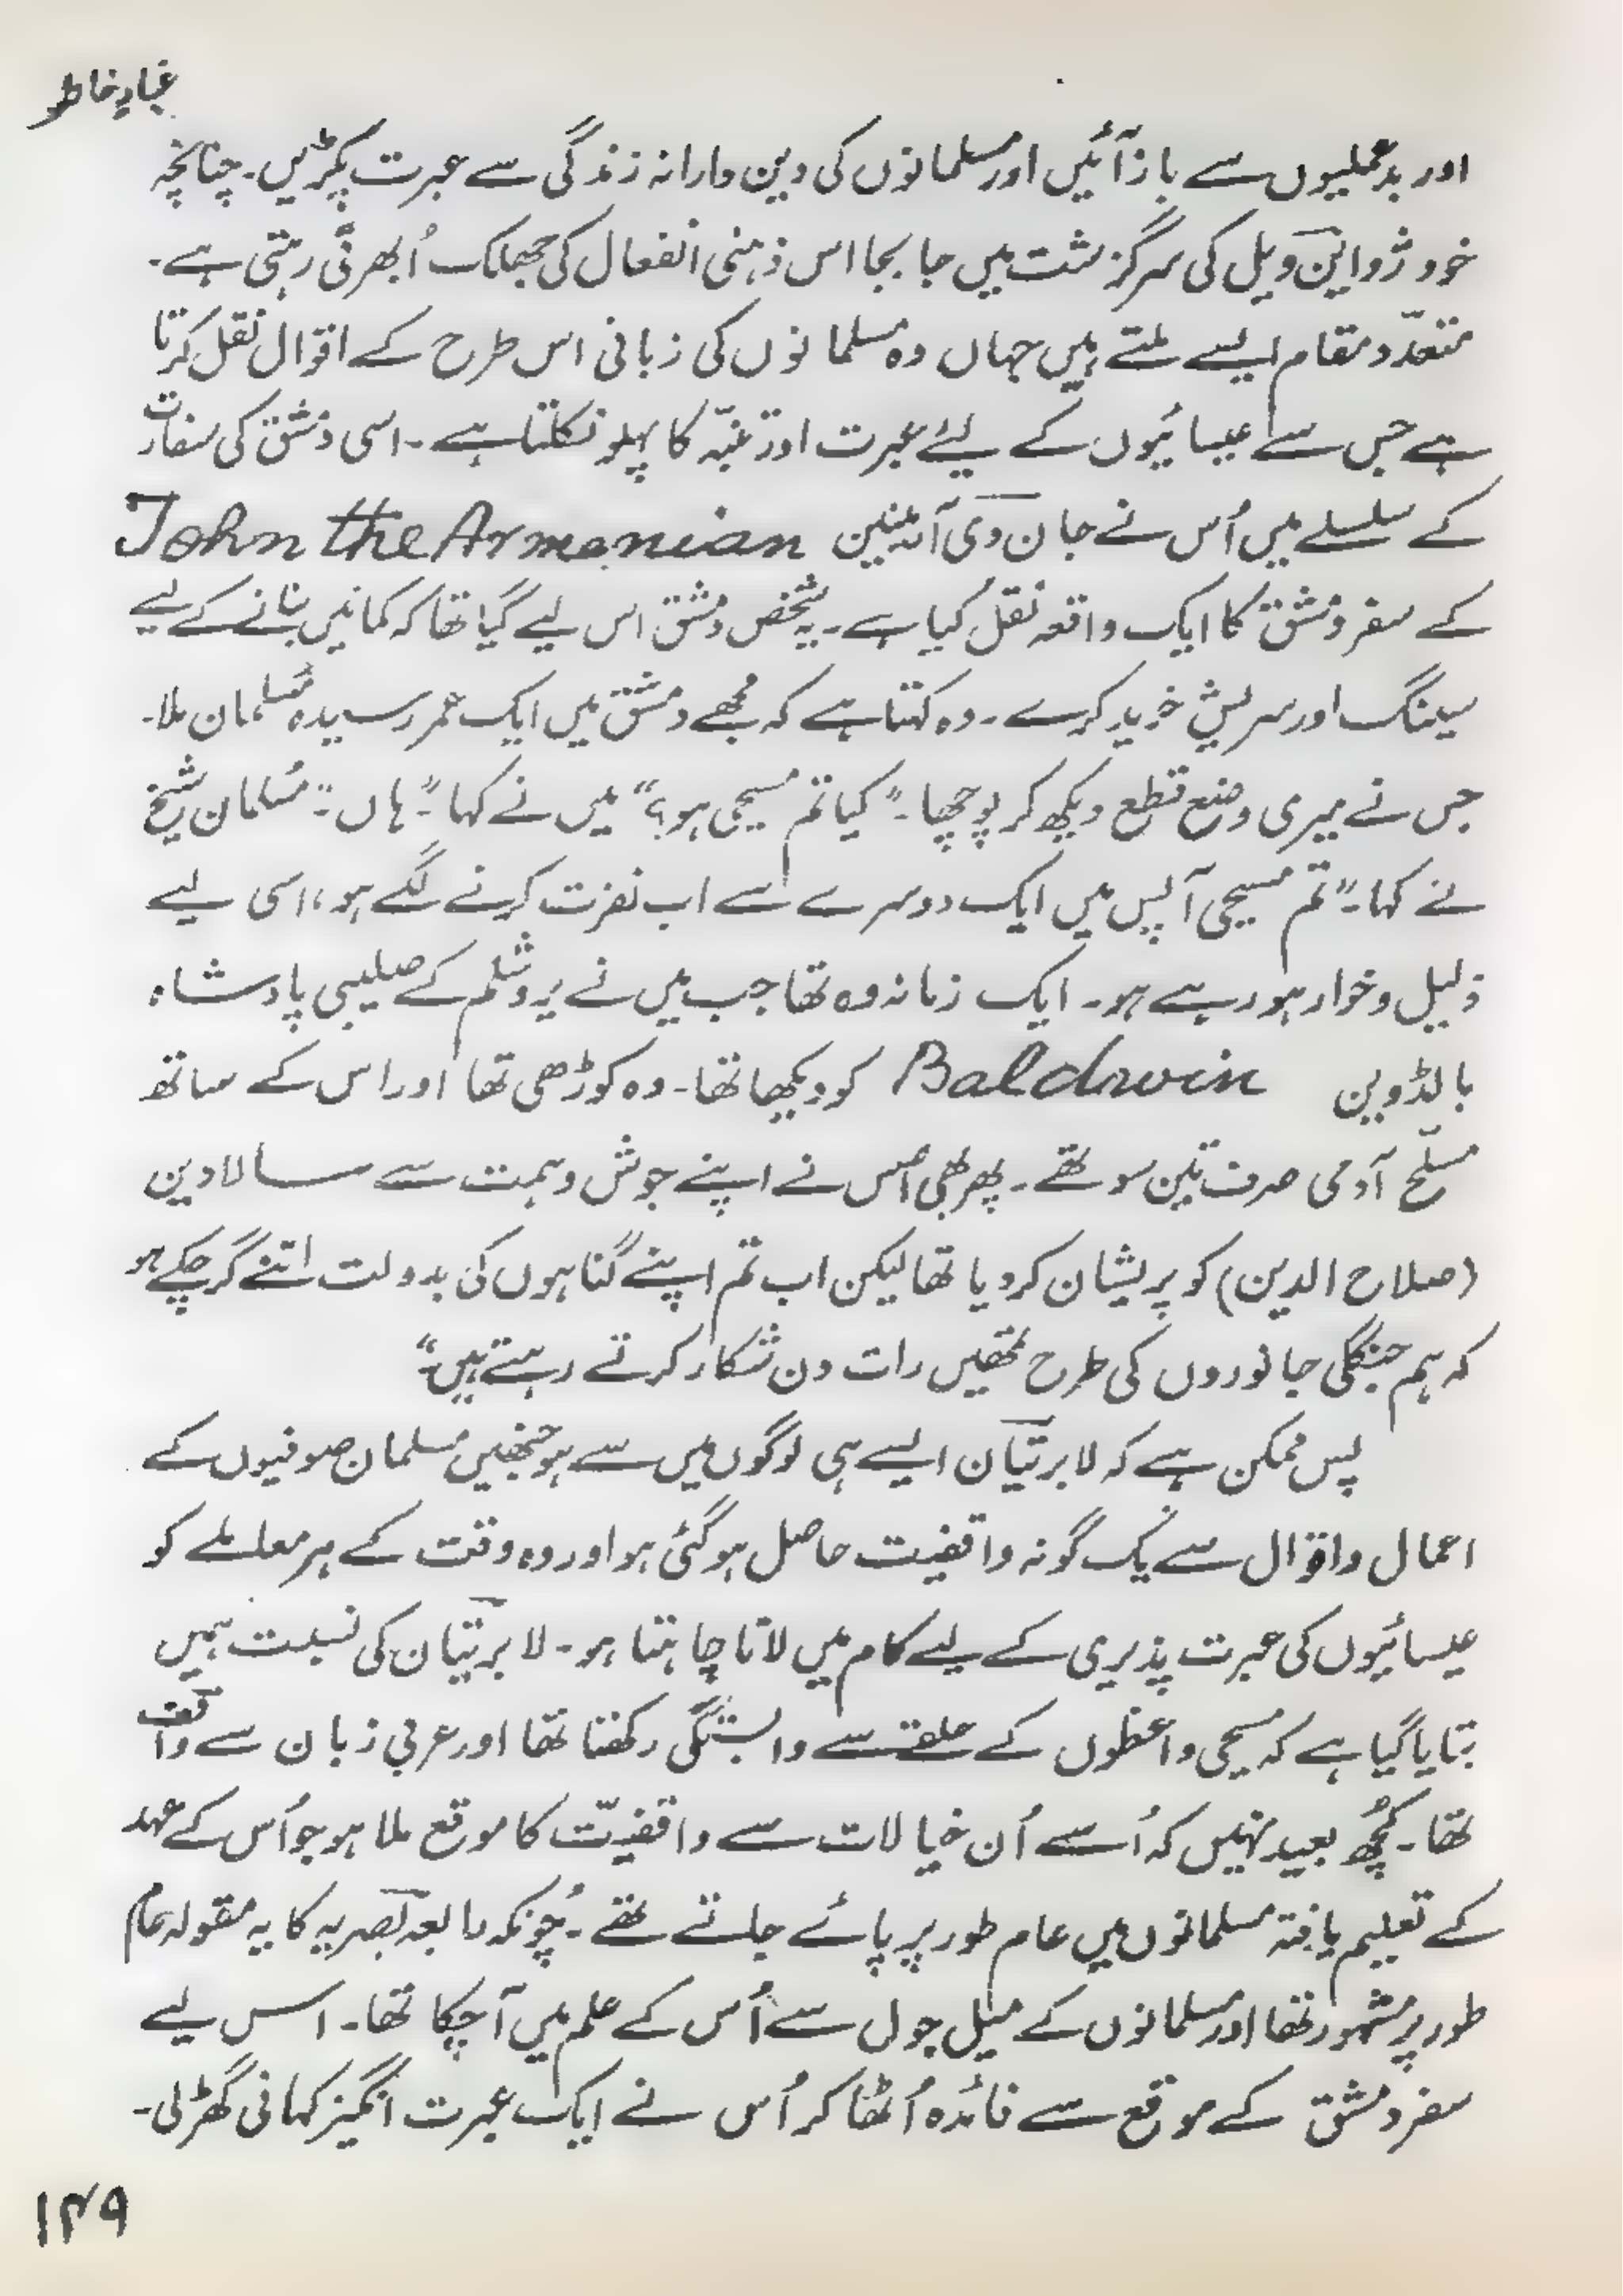 غبارِ خاطر
اور بدعملیوں سے باز آئیں اور مسلمانوں کی دین دارانہ زندگی سے عبرت پکڑیں۔ چنانچہ
خود ژواین ویل کی سرگزشت میں جابجا اس ذہنی انفعال کی جھلک اُبھرتی رہتی ہے۔
متعدّد مقام ایسے ملتے ہیں جہاں وہ مسلمانوں کی زبانی اس طرح کے اقوال نقل کرتا
ہے جس سے عیسائیوں کے لیئے عبرت اور تنبّہ کا پہلو نکلتا ہے۔ اسی دمشق کی سفارت
کے سلسلے میں اُس نے جان دی آرمینین John the Armenian
کے سفر دمشق کا ایک واقعہ نقل کیا ہے۔ یہ شخص دمشق اس لیے گیا تھا کہ کمانیں بنانے کے لیے
سینگ اور سریش خرید کرے۔ وہ کہتا ہے کہ مجھے دمشق میں ایک عمر رسیدہ مُسلمان ملا۔
جس نے میری وضع قطع دیکھ کر پوچھا۔ "کیا تم مسیحی ہو؟" میں نے کہا "ہاں"۔ مُسلمان شیخ
نے کہا۔ "تم مسیحی آپس میں ایک دوسرے سے اب نفرت کرنے لگے ہو، اسی لیے
ذلیل و خوار ہو رہے ہو۔ ایک زمانہ وہ تھا جب میں نے یروشلم کے صلیبی پادشاہ
بالڈوین Baldwin کو دیکھا تھا۔ وہ کوڑھی تھا اور اس کے ساتھ
مسلّح آدمی صرف تین سو تھے۔ پھر بھی اُس نے اپنے جوش و ہمت سے سالادین
(صلاح الدین) کو پریشان کر دیا تھا لیکن اب تم اپنے گناہوں کی بدولت اتنے گر چکے ہو
کہ ہم جنگلی جانوروں کی طرح تمھیں رات دن شکار کرتے رہتے ہیں۔"
پس ممکن ہے کہ لا برتیان ایسے ہی لوگوں میں سے ہو جنھیں مسلمان صوفیوں کے
اعمال و اقوال سے یک گونہ واقفیت حاصل ہو گئی ہو اور وہ وقت کے ہر معاملے کو
عیسائیوں کی عبرت پذیری کے لیے کام میں لانا چاہتا ہو۔ لا برتیان کی نسبت ہمیں
بتایا گیا ہے کہ مسیحی واعظوں کے حلقے سے وابستگی رکھتا تھا اور عربی زبان سے واقف
تھا۔ کُچھ بعید نہیں کہ اُسے اُن خیالات سے واقفیّت کا موقع ملا ہو جو اُس کے عہد
کے تعلیم یافتہ مسلمانوں میں عام طور پر پائے جاتے تھے۔ چُونکہ رابعہ بصریہ کا یہ مقولہ عام
طور پر مشہور تھا اور مسلمانوں کے میل جول سے اُس کے علم میں آ چکا تھا۔ اس لیے
سفر دمشق کے موقع سے فائدہ اُٹھا کر اُس نے ایک عبرت انگیز کہانی گھڑ لی۔
۱۴۹